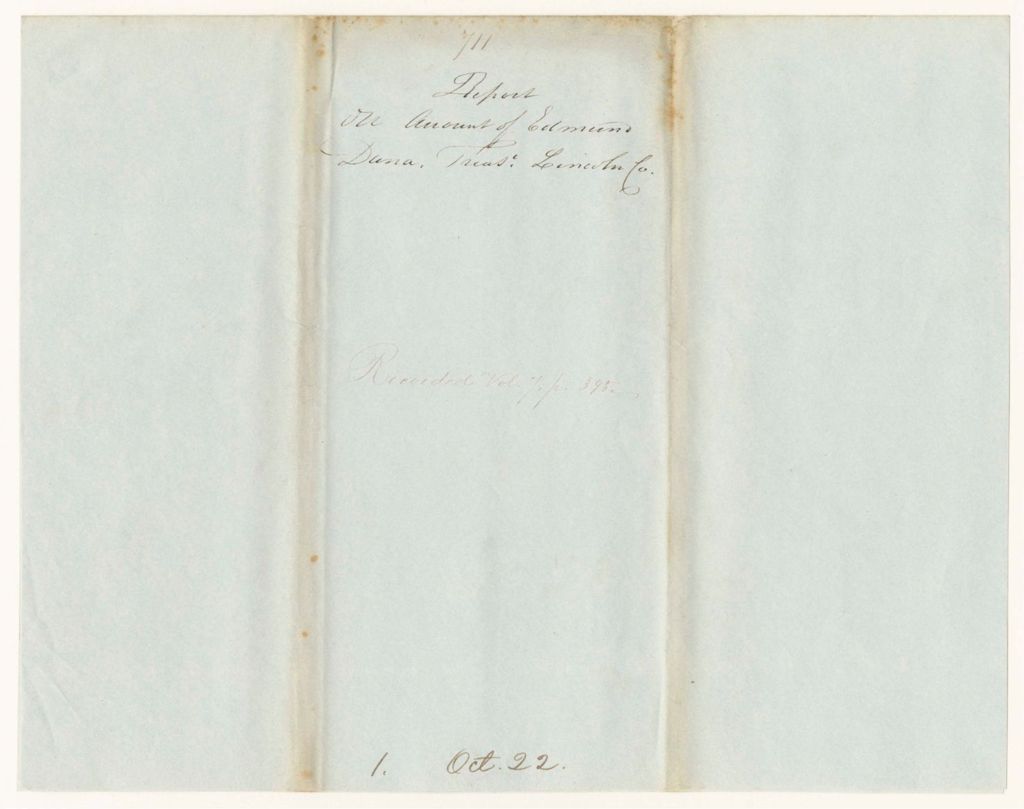 711
Report
On Account of Edmund
Dana. Treasr. Lincoln Co.
Recorded Vol. 7. p. 395.
1. Oct. 22.